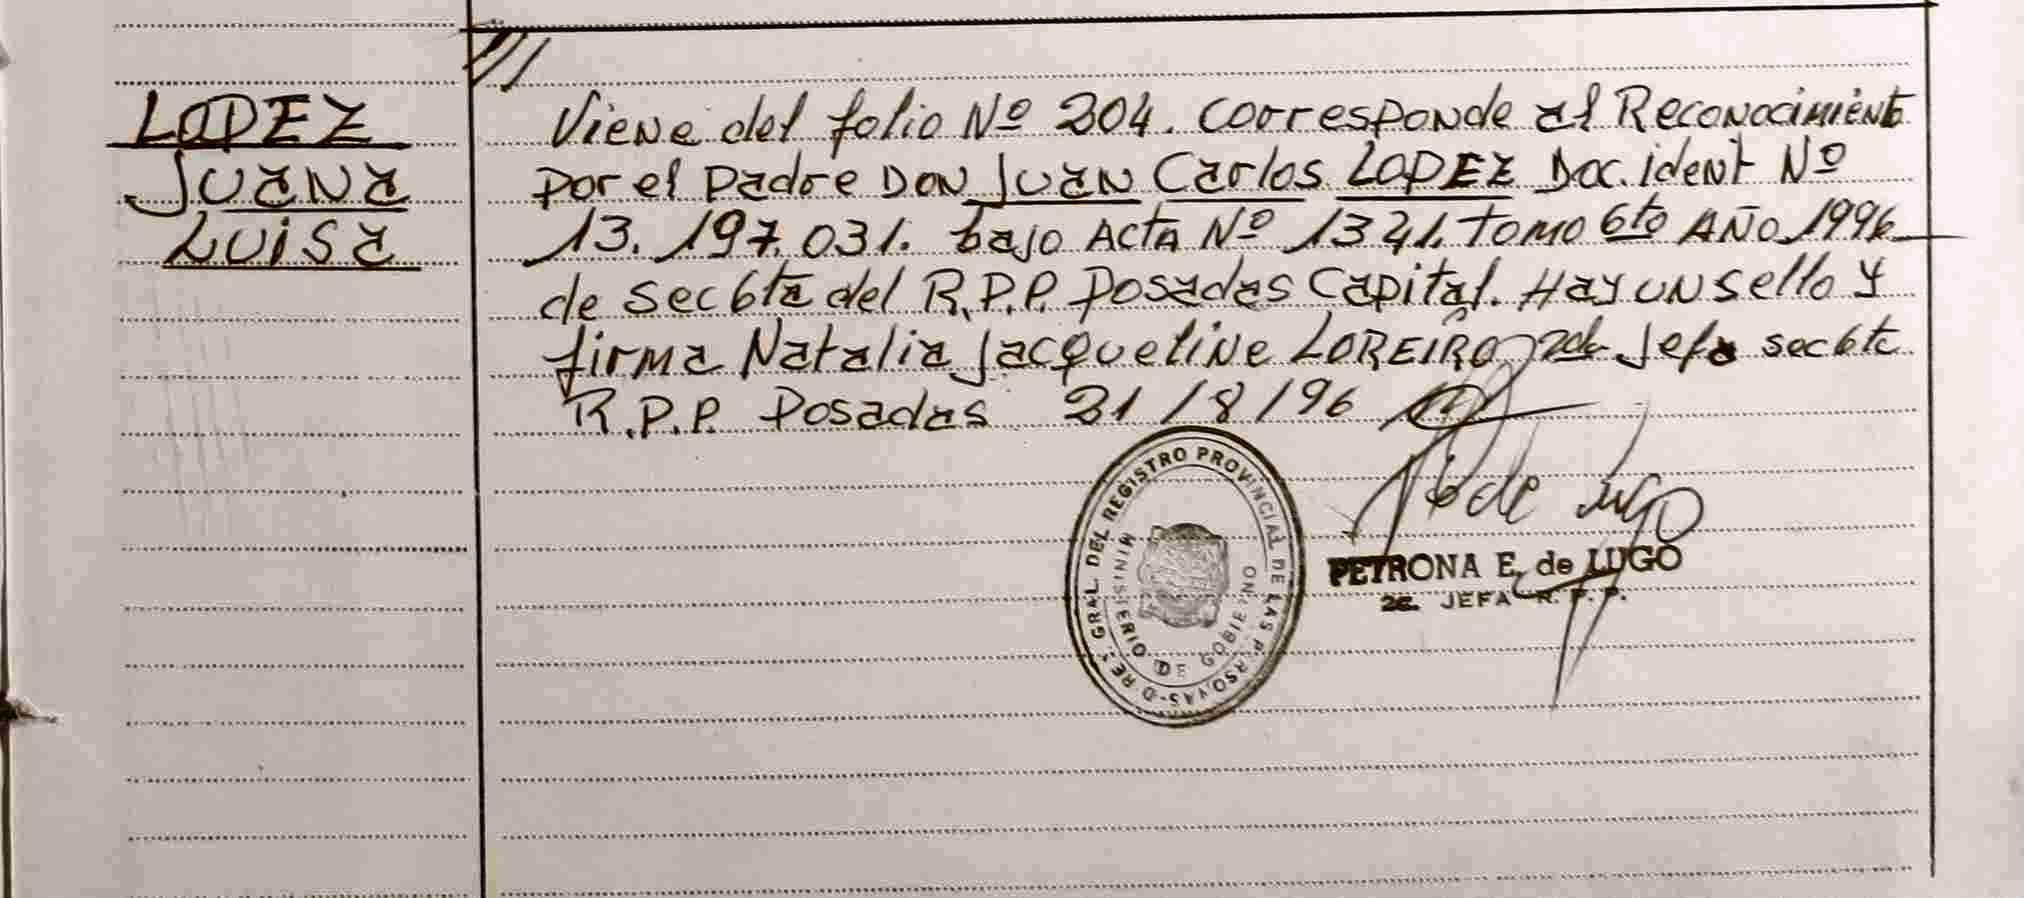 LOPEZ
Juana
Luisa
Viene del folio Nº 204. Corresponde al Reconocimiento
por el padre Don Juan Carlos LOPEZ Doc. ident Nº
13.197.031. bajo Acta Nº 1321. tomo 6to Año 1996
de sec 6ta del R.P.P. Posadas Capital. Hay un sello y
firma Natalia Jacqueline LOREIRO 2da Jefa sec 6ta
R.P.P. Posadas 21/8/96
de Lugo
GRAL. DEL REGISTRO PROVINCIAL DE LAS PERSONAS
MINISTERIO DE GOBIERNO
PETRONA E. de LUGO
2a. JEFA R. P. P.